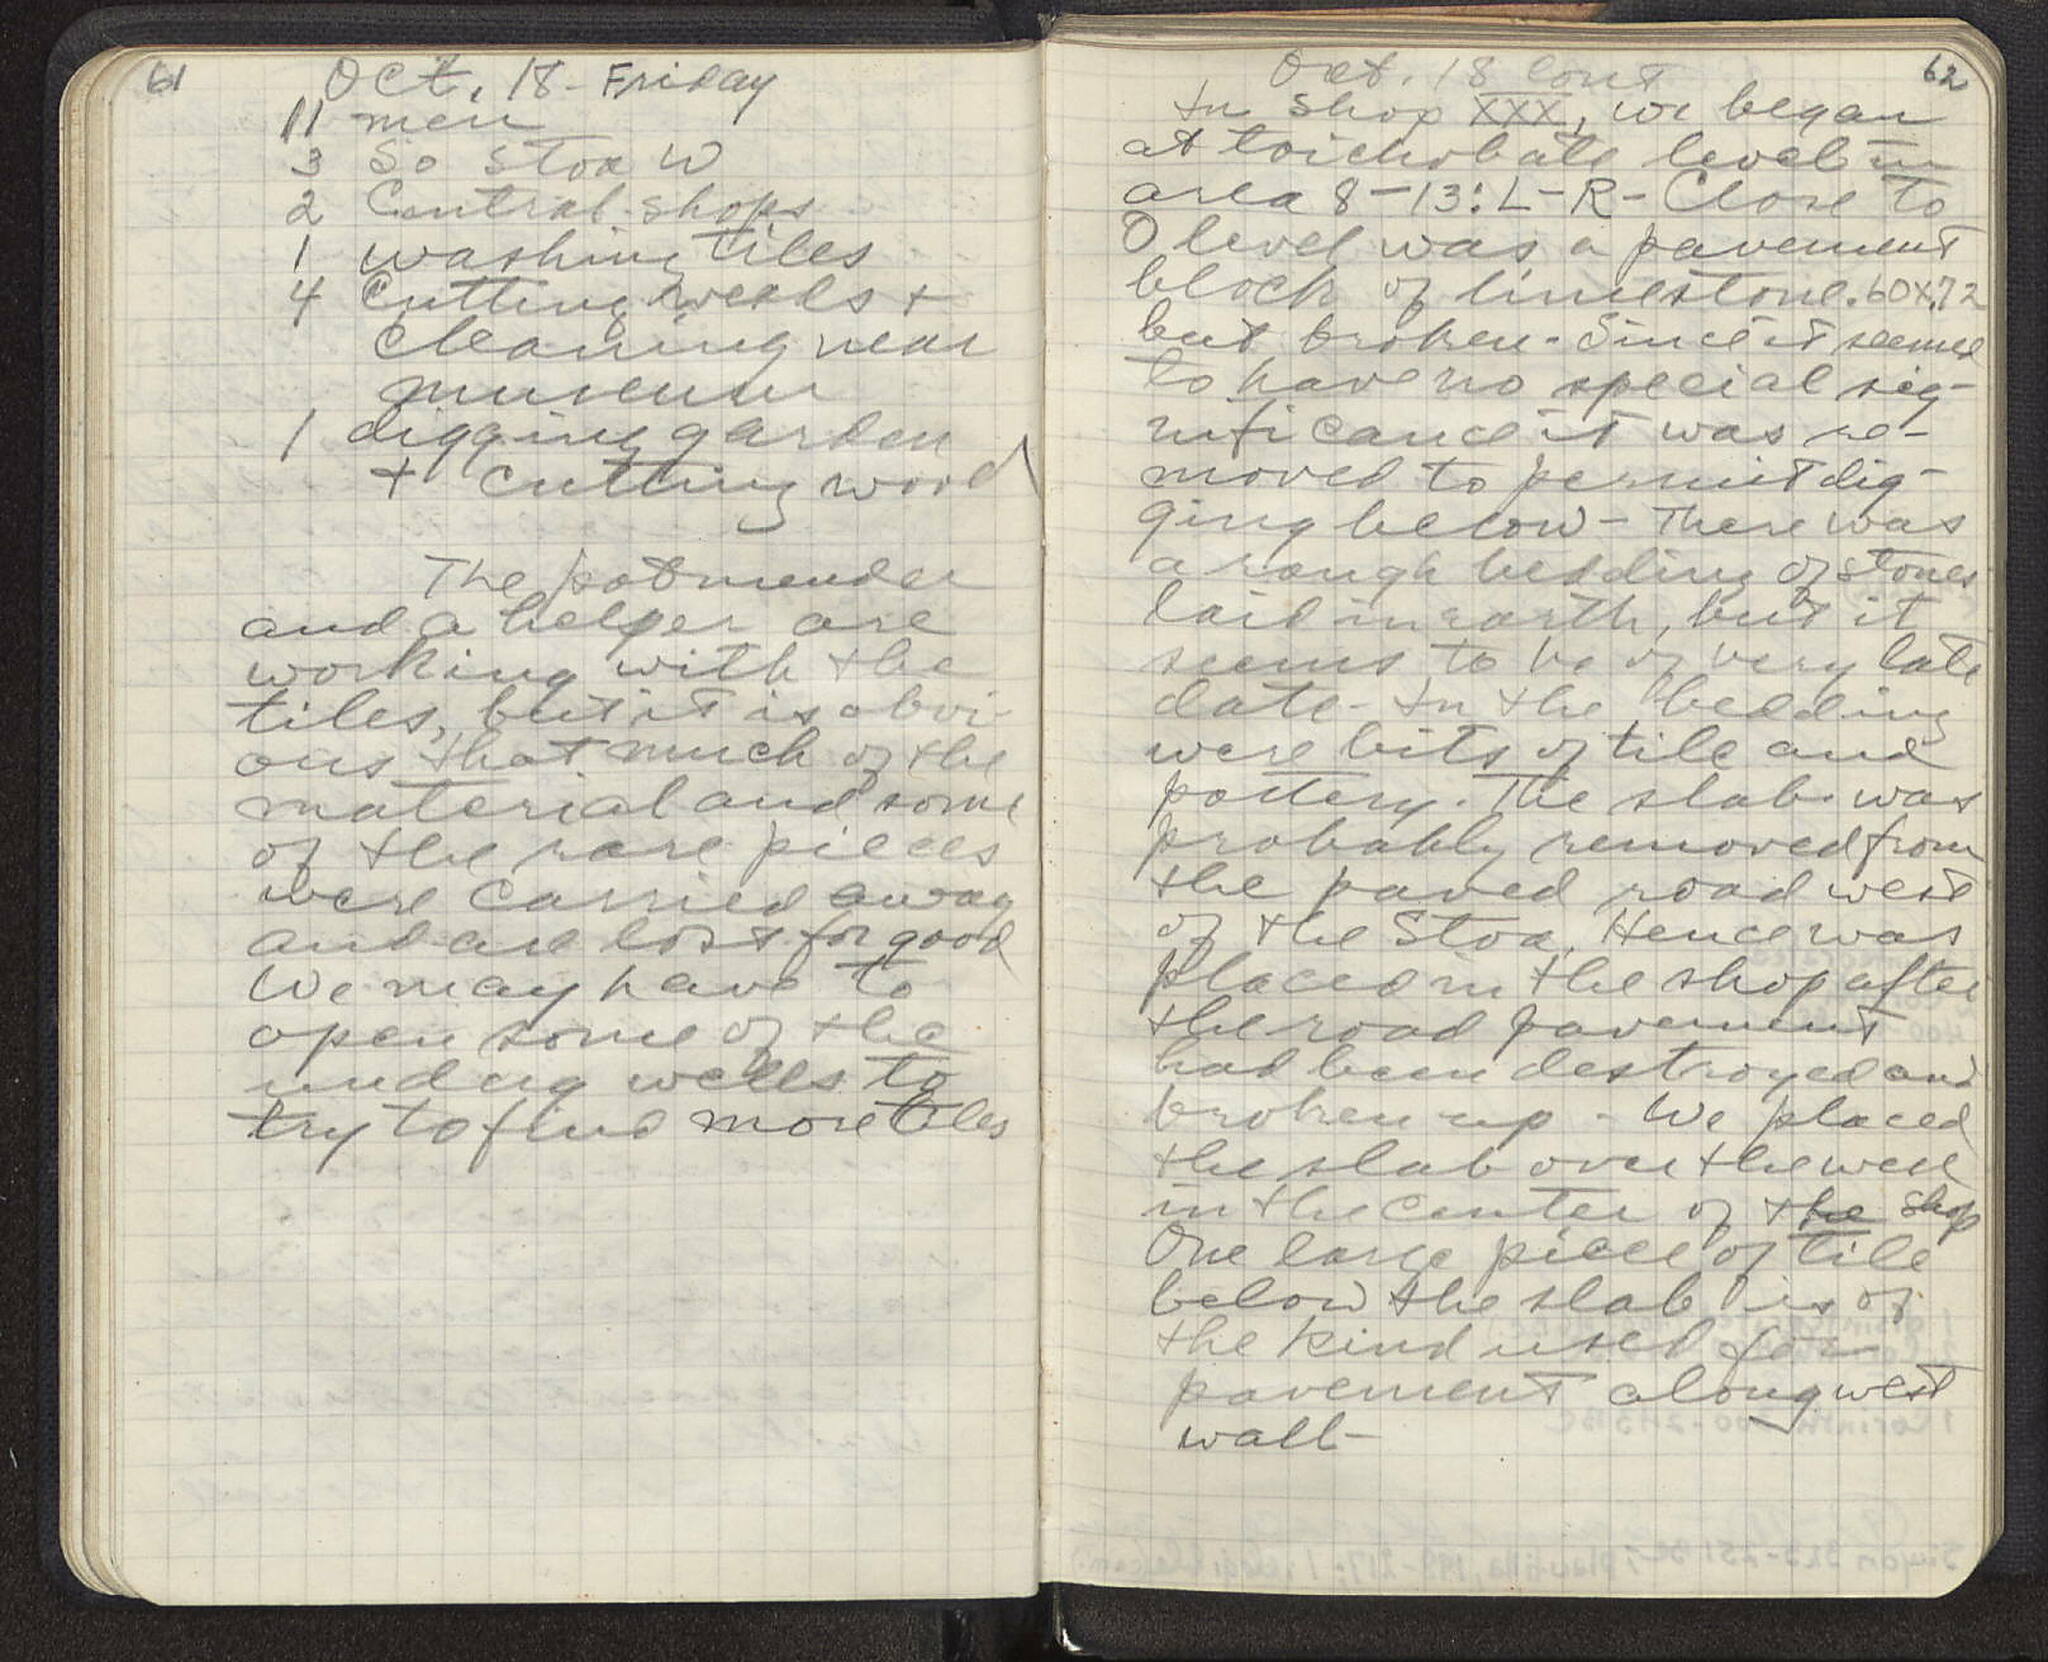 61
Oct. 18 - Friday
11 men
3 So Stoa W
2 Central shops
1 washing tiles
4 Cutting weeds +
cleaning near
museum
1 digging garden
+ cutting wood
The potmender
and a helper are
working with the
tiles, but it is obvi-
ous that much of the
material and some
of the rare pieces
were carried away
and are lost for good
We may have to
open some of the
undug wells to
try to find more tiles
62
Oct. 18 Cont
In Shop XXX, we began
at toichobate level in
area 8-13:L-R- Close to
O level was a pavement
block of limestone .60x.72
but broken - Since it seemed
to have no special sig-
nificance it was re-
moved to permit dig-
ging below - There was
a rough bedding of stones
laid in earth, but it
seems to be of very late
date - In the bedding
were bits of tile and
pottery. The slab was
probably removed from
the paved road west
of the Stoa, Hence was
placed in the shop after
the road pavement
had been destroyed and
broken up - We placed
the slab over the well
in the center of the shop
One large piece of tile
below the slab is of
the kind used for
pavement along west
wall -